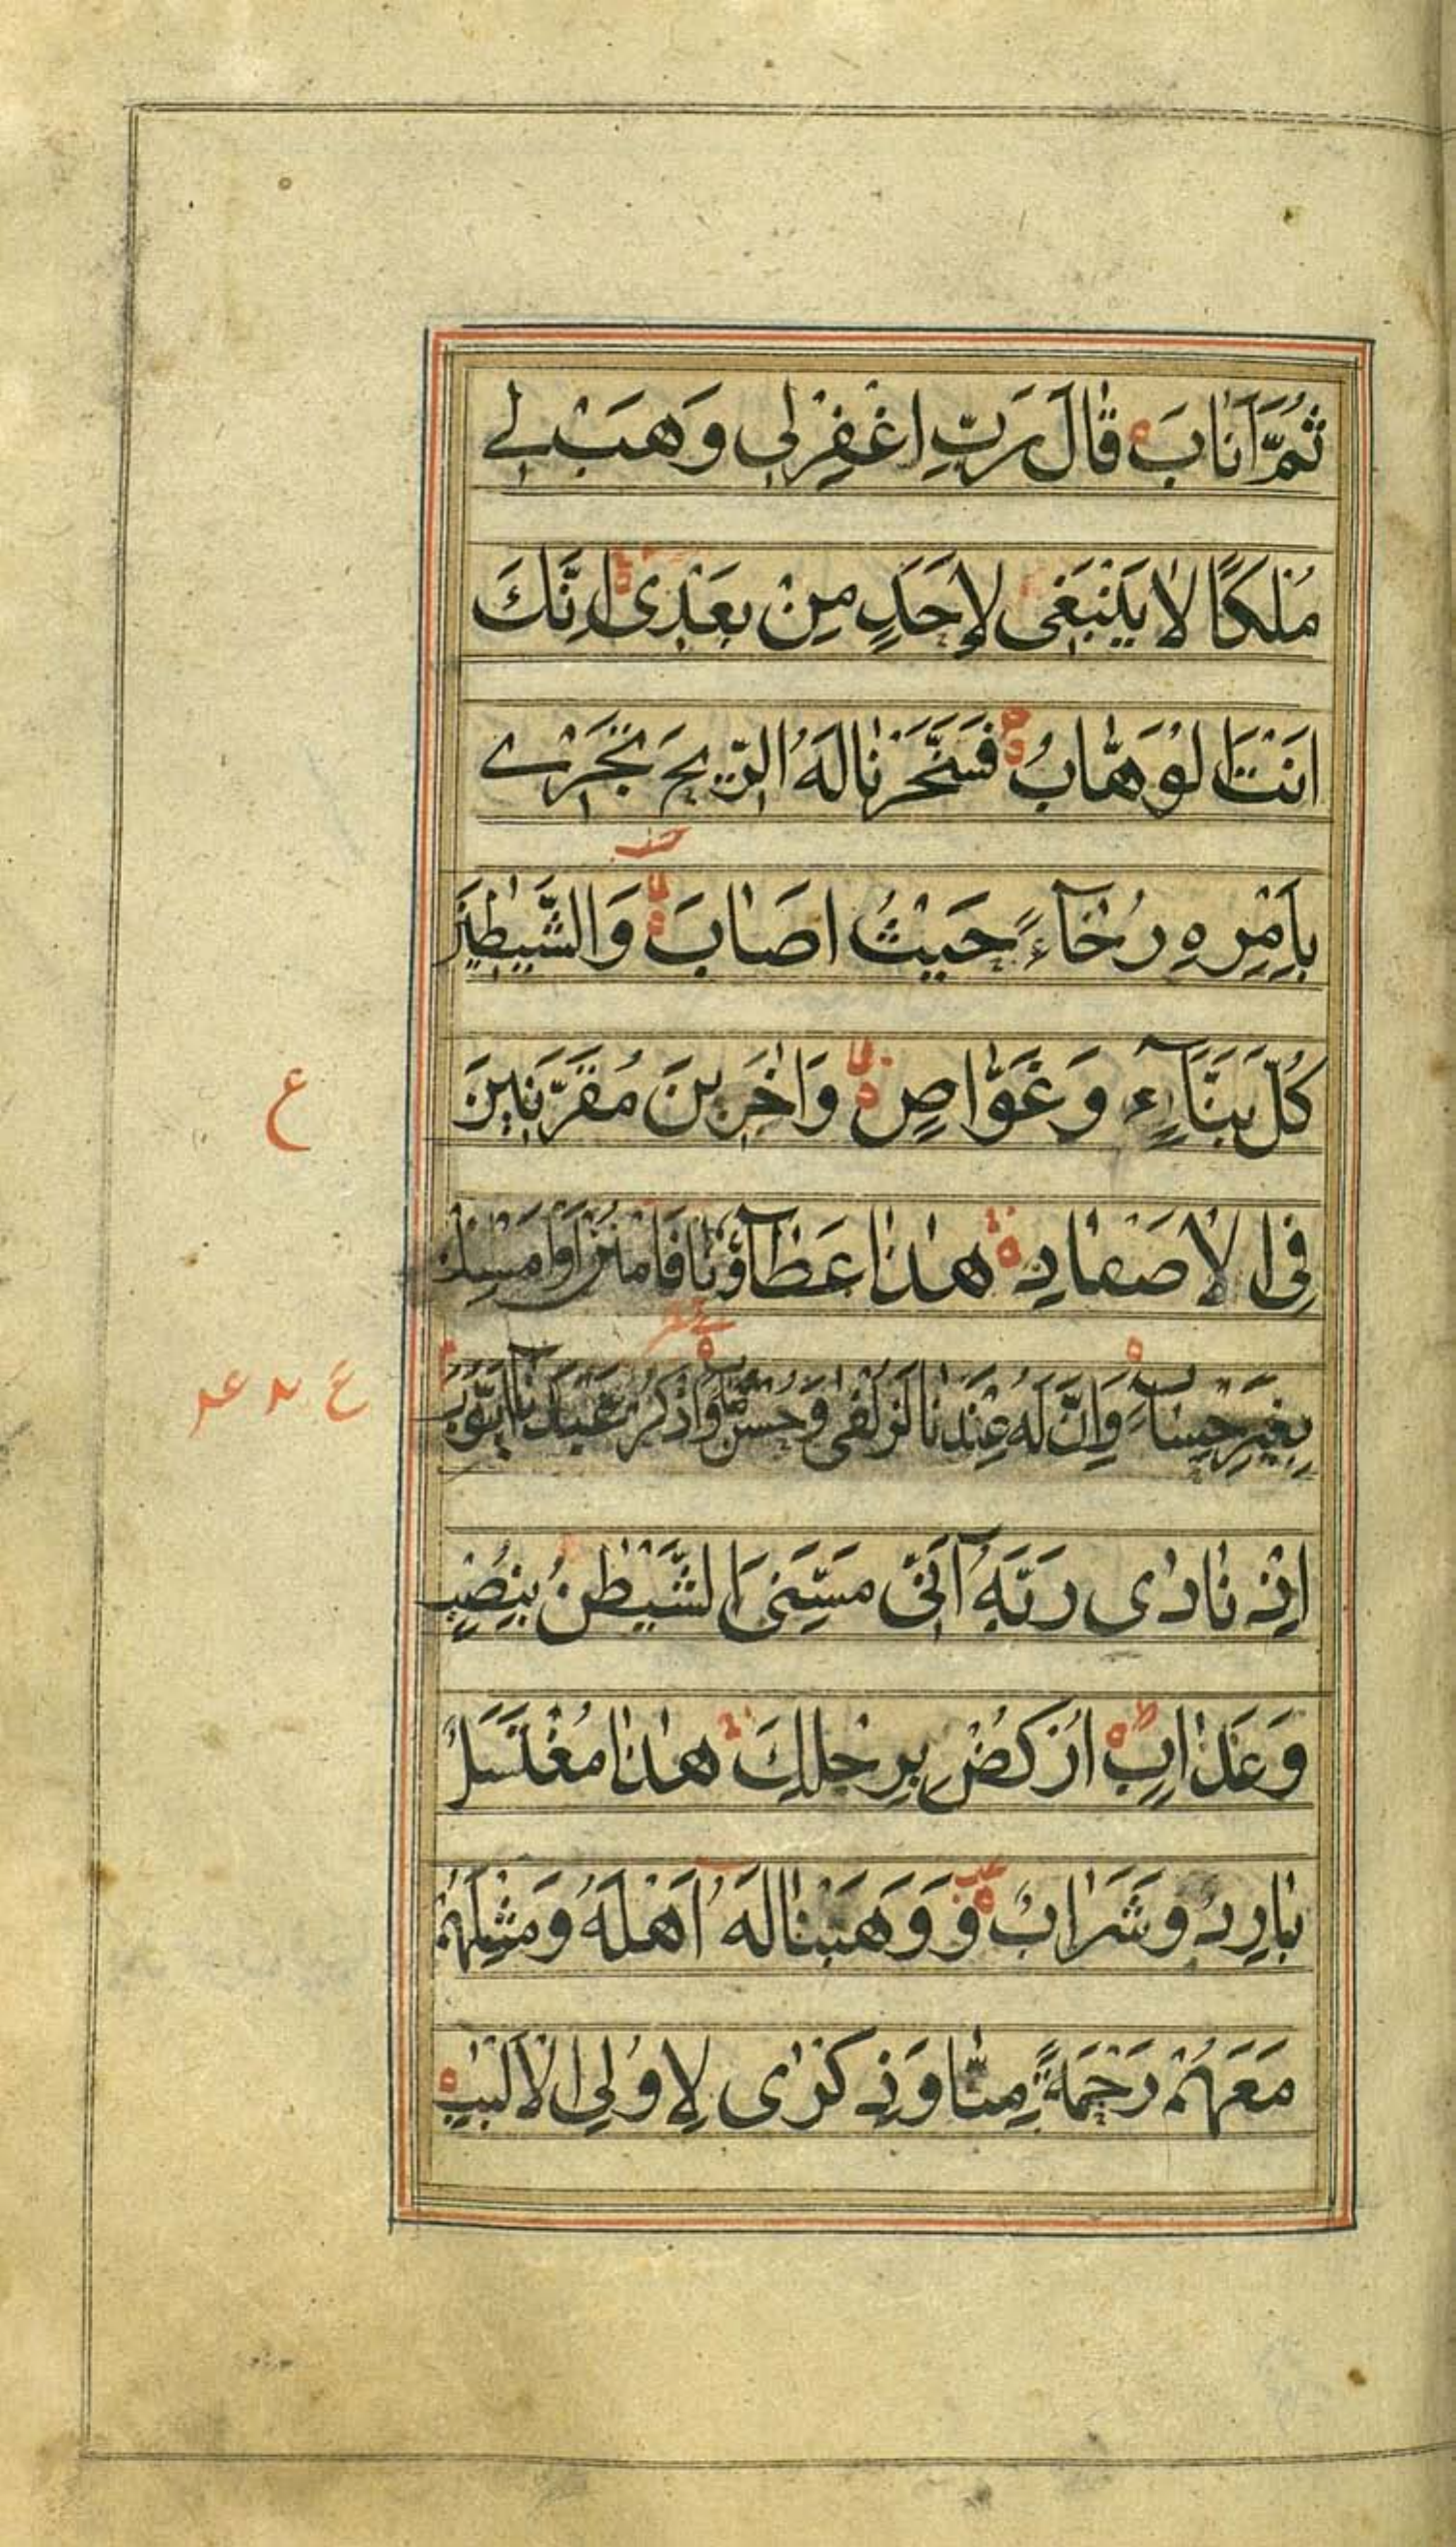 ثُمَّ اَنَابَ قَالَ رَبِّ اغْفِرْلِي وَهَبْ لِے
مُلْكًا لَا يَنْبَغِي لِاَحَدٍ مِنْ بَعْدِي اِنَّكَ
اَنْتَ الْوَهَّابُ فَسَخَّرْنَا لَهُ الرِّيحَ تَجْرِے
بِاَمْرِهِ رُخَآءً حَيْثُ اَصَابَ وَالشَّيٰطِينَ
كُلَّ بَنَّآءٍ وَغَوَّاصٍ وَاٰخَرِينَ مُقَرَّنِينَ
فِي الْاَصْفَادِ هٰذَا عَطَآؤُنَا فَامْنُنْ اَوْ اَمْسِكْ
بِغَيْرِ حِسَابٍ وَاِنَّ لَهُ عِنْدَنَا لَزُلْفٰى وَحُسْنَ مَاٰبٍ وَاذْكُرْ عَبْدَنَا اَيُّوبَ
اِذْ نَادٰى رَبَّهُ اَنِّي مَسَّنِيَ الشَّيْطٰنُ بِنُصْبٍ
وَعَذَابٍ اُرْكُضْ بِرِجْلِكَ هٰذَا مُغْتَسَلٌ
بَارِدٌ وَشَرَابٌ وَ وَهَبْنَا لَهُ اَهْلَهُ وَمِثْلَهُمْ
مَعَهُمْ رَحْمَةً مِنَّا وَذِكْرٰى لِاُولِي الْاَلْبَابِ
ع